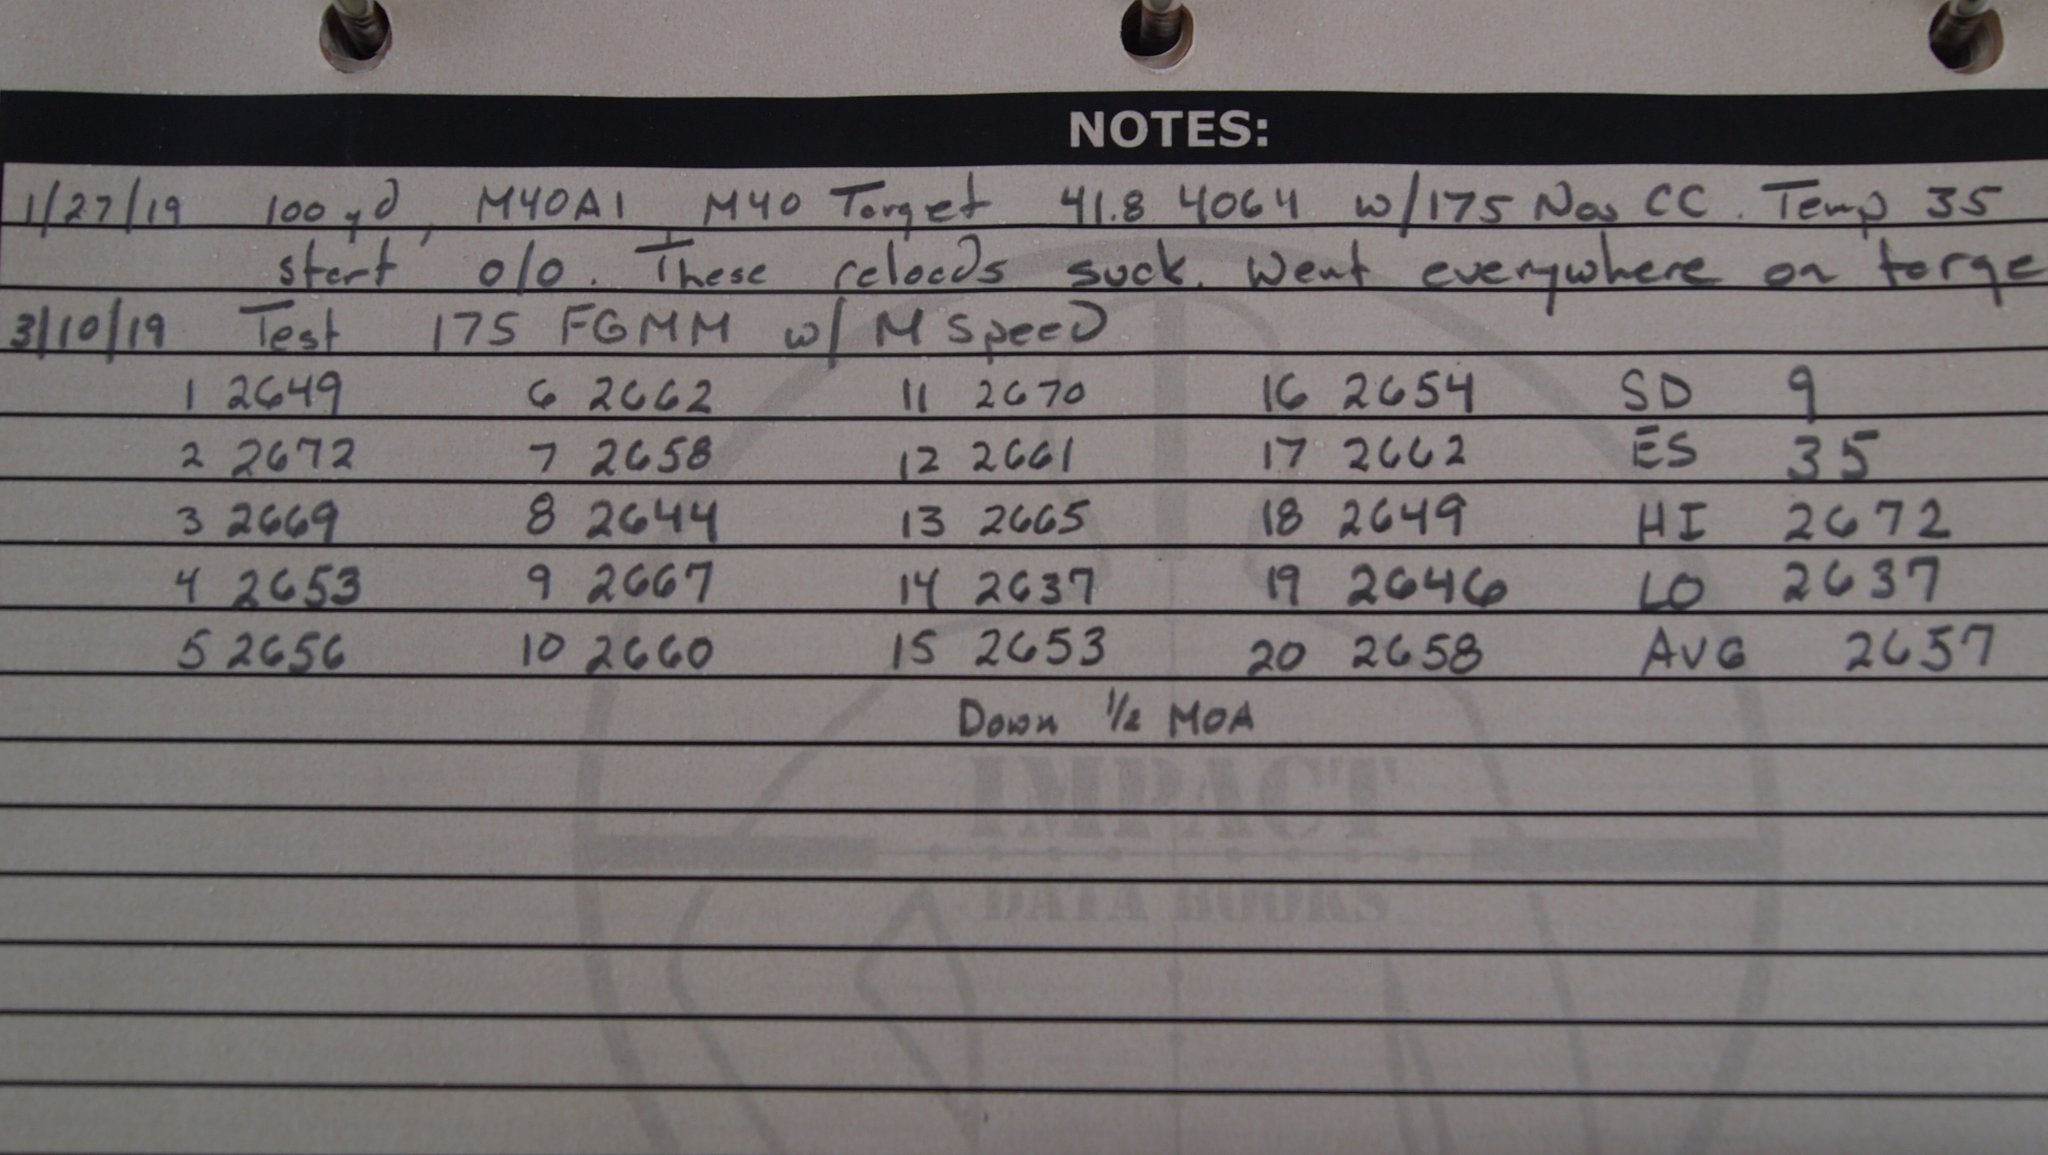 NOTES:
1/27/19 100 yd, M40A1 M40 Target 41.8 4064 w/175 Nos CC. Temp 35
start 0/0. These reloads suck. Went everywhere on targe
3/10/19 Test 175 FGMM w/ M Speed
1 2649 6 2662 11 2670 16 2654 SD 9
2 2672 7 2658 12 2661 17 2662 ES 35
3 2669 8 2644 13 2665 18 2649 HI 2672
4 2653 9 2667 14 2637 19 2646 LO 2637
5 2656 10 2660 15 2653 20 2658 AVG 2657
Down 1/2 MOA
IMPACT
DATA BOOKS